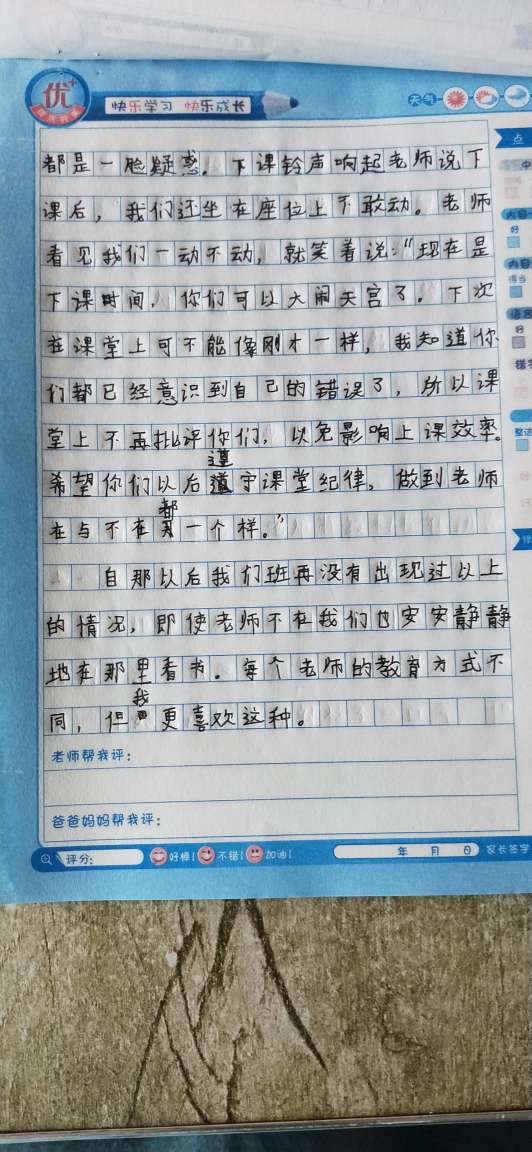 优+
快乐学习 快乐成长
天气
都是一脸疑惑。下课铃声响起老师说下
课后，我们还坐在座位上不敢动。老师
看见我们一动不动，就笑着说："现在是
下课时间，你们可以大闹天宫了。下次
在课堂上可不能像刚才一样，我知道你
们都已经意识到自己的错误了，所以课
堂上不再批评你们，以免影响上课效率。
希望你们以后遵守课堂纪律，做到老师
在与不在都一个样。"
自那以后我们班再没有出现过以上
的情况，即使老师不在我们也安安静静
地在那里看书。每个老师的教育方式不
同，但我更喜欢这种。
老师帮我评：
爸爸妈妈帮我评：
评分：
好棒！
不错！
加油！
年 月 日
家长签字
点
内容
好
内容
得当
语言
好
整洁